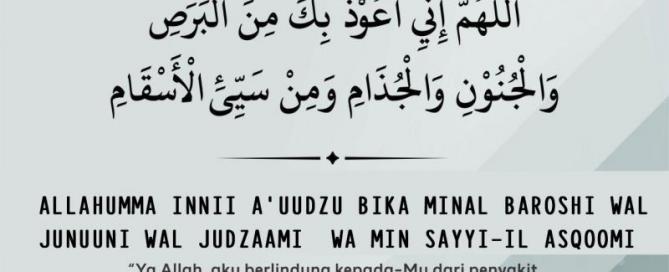 اَللّٰهُمَّ إِنِّي أَعُوْذُ بِكَ مِنَ الْبَرَصِ
وَالْجُنُوْنِ وَالْجُذَامِ وَمِنْ سَيِّئِ الْأَسْقَامِ
ALLAHUMMA INNII A'UUDZU BIKA MINAL BAROSHI WAL
JUNUUNI WAL JUDZAAMI WA MIN SAYYI-IL ASQOOMI
"Ya Allah, aku berlindung kepada-Mu dari penyakit